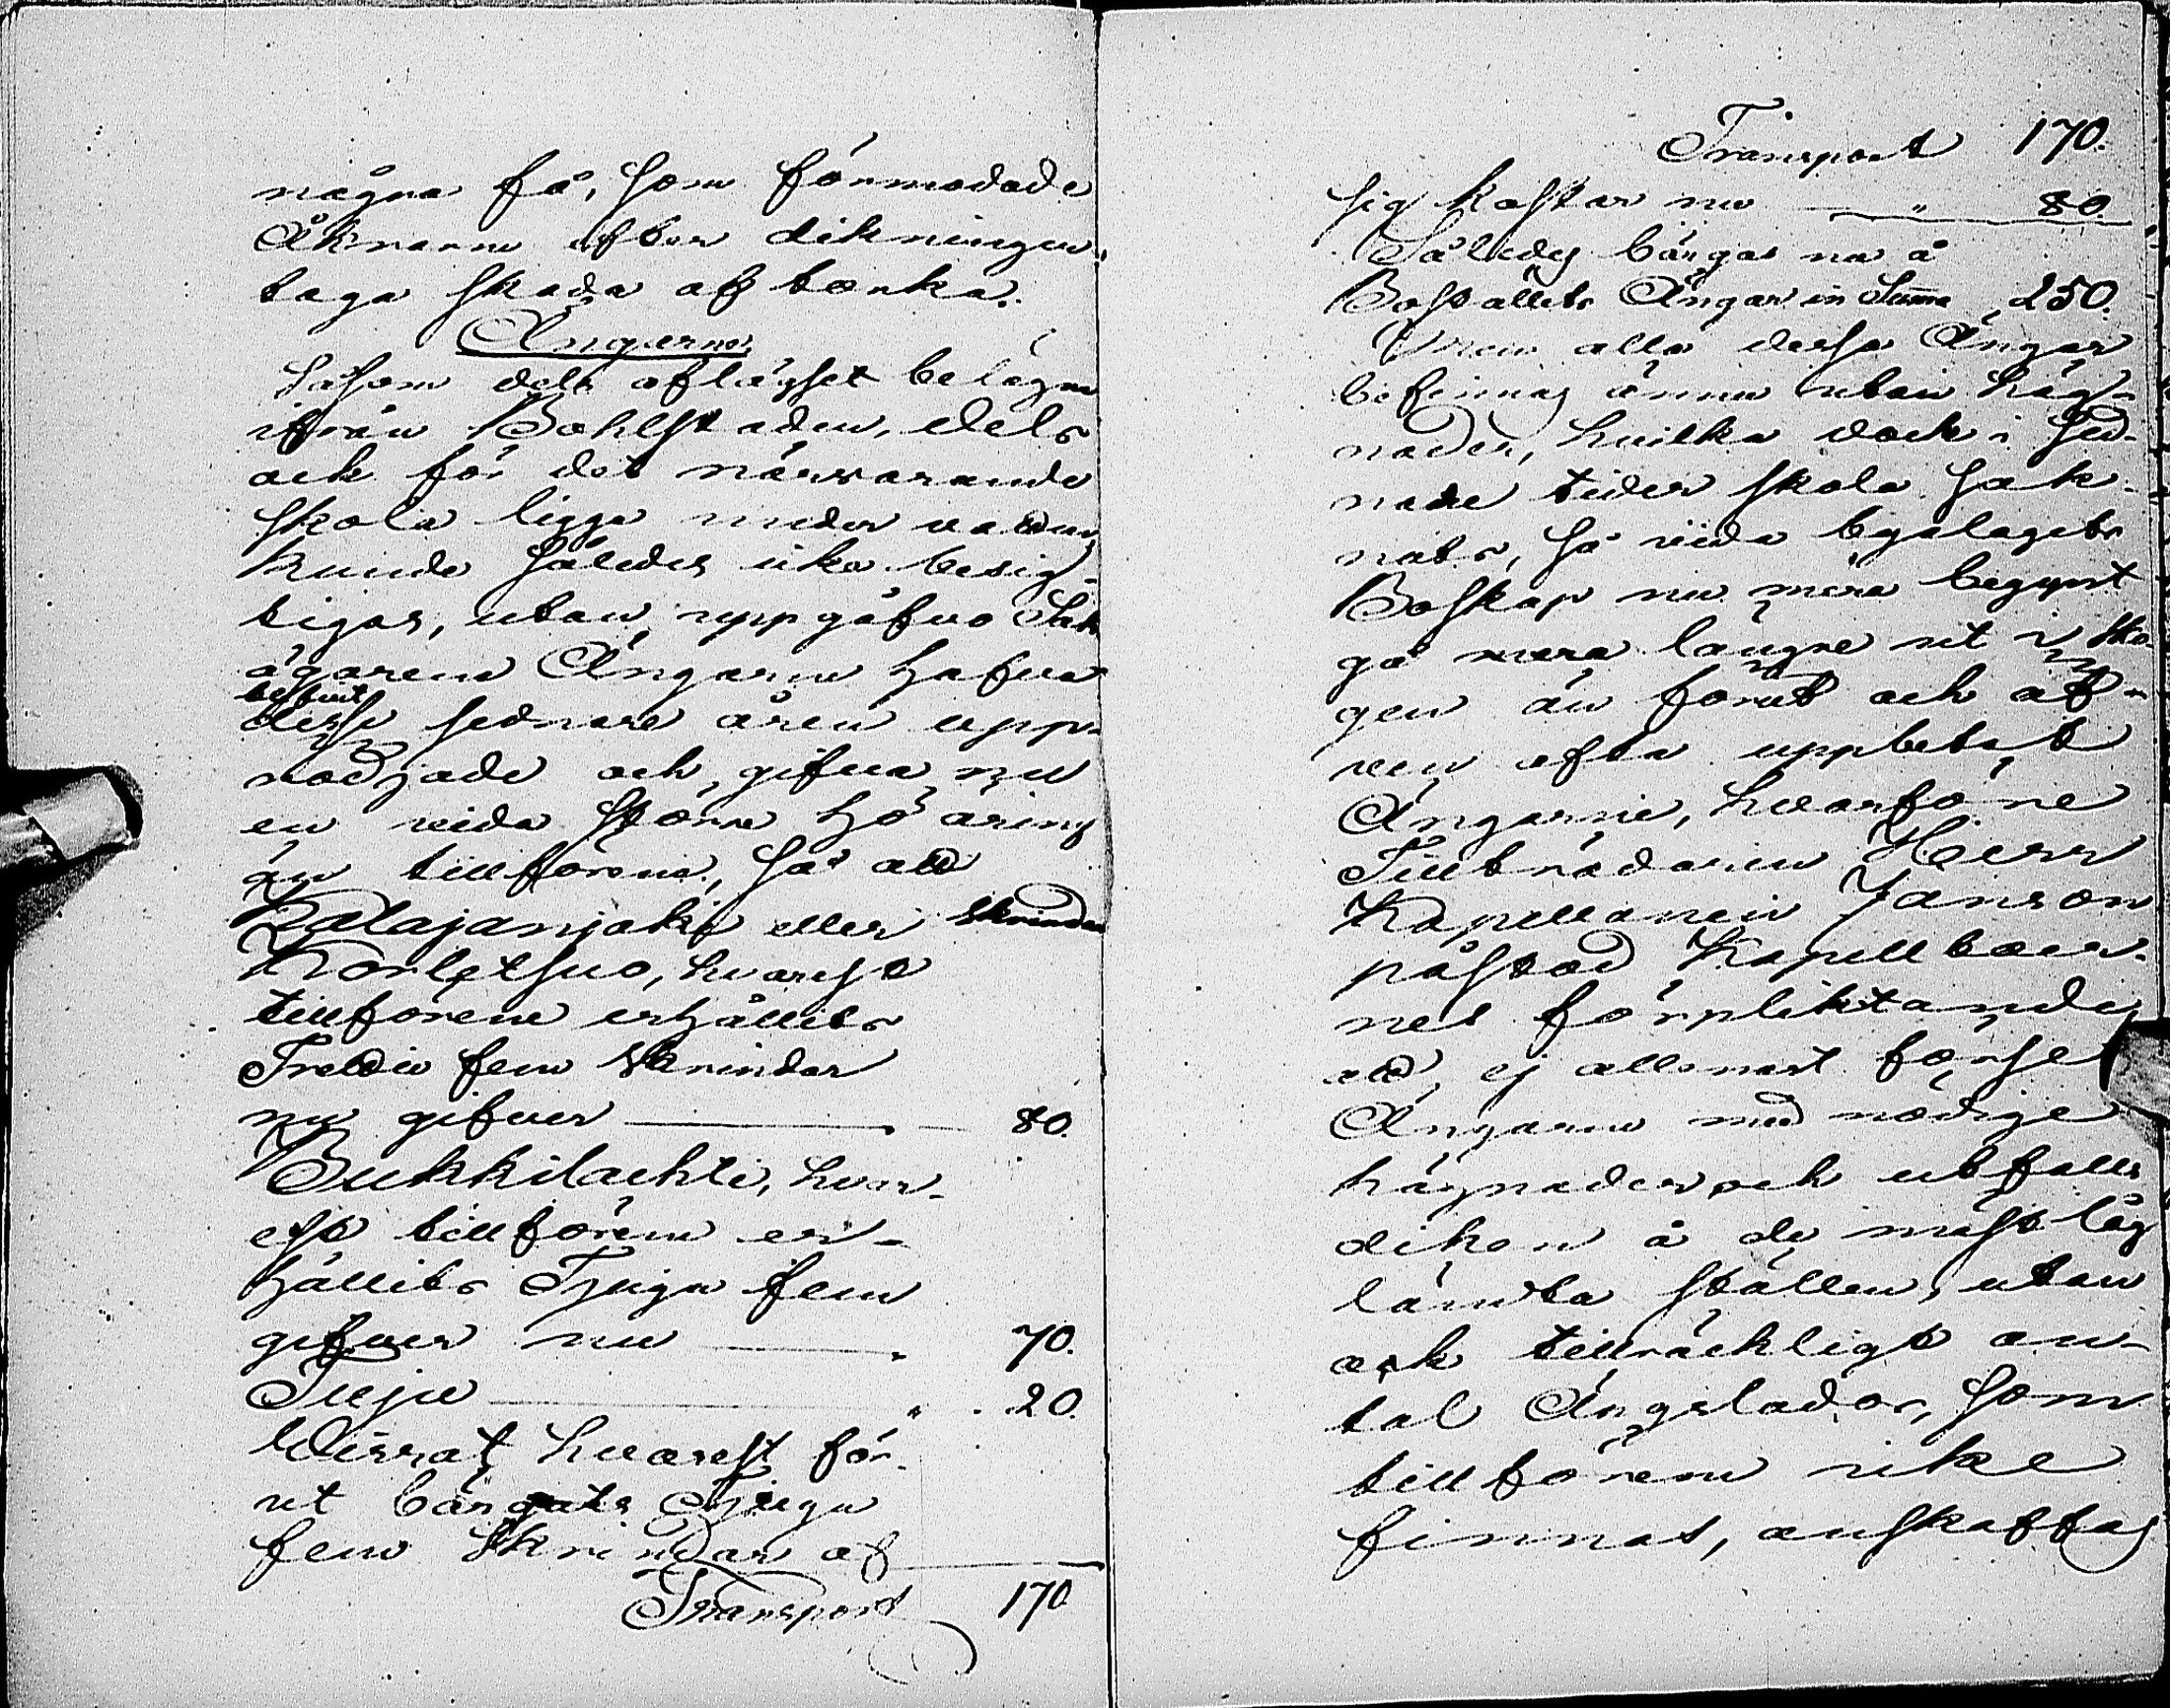 några få, som förmodade
Åkrarne efter dikningen
taga skada af torka.
Ängarne
Såsom dels aflägset belägna
ifrån Bohlstaden, dels
ock för det närvarande
skola ligga under vatten,
kunde således icke besig-
tigas, utan uppgåfvo Sak-
ägarene Ängarne hafva
dessa sednare åren upp-
rödjade och gifva nu
en vida större hö äring
än tillförene, så att
Kalajanjoki eller Skrindor
Korletsuo, hvarest
tillförene erhållits
Trettio fem Skrindor
nu gifver 80.
Bukkilachti, hvar-
est tillförene er-
hållits Tjugu fem
gifver nu " 70.
Tuju " 20.
Wirrat hvarest för-
ut bärgats Tjugu
fem Skrindor af
Transport 170
Transport 170.
sig kastar nu " 80.
Således bärgas nu å
Boställets Ängar in Summa 250.
Urom alla dessa Ängar
befinnas ännu utan häg-
nader, hvilka dock i sed-
nare tider skola sak-
nats, så vida byalagets
Boskap nu mera begynt
gå mera längre ut i sko-
gen än förut och äf-
ven ofta uppbetat
Ängarne, hvarföre
Tillträdaren Herr
Kapellanen Janson
påstod Kapellboer-
nes förpliktande
att ej allenast förse
Ängarne med nödige
hägnader och utfalls
diken å de mäst låg
lännta ställen, utan
ock tillräckligt an-
tal Ängslador, som
tillförene icke
finnas, anskaffas